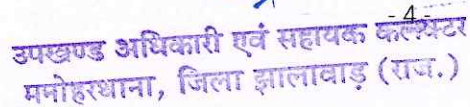 - 4 -
उपखण्ड अधिकारी एवं सहायक कलक्टर
मनोहरथाना, जिला झालावाड़ (राज.)